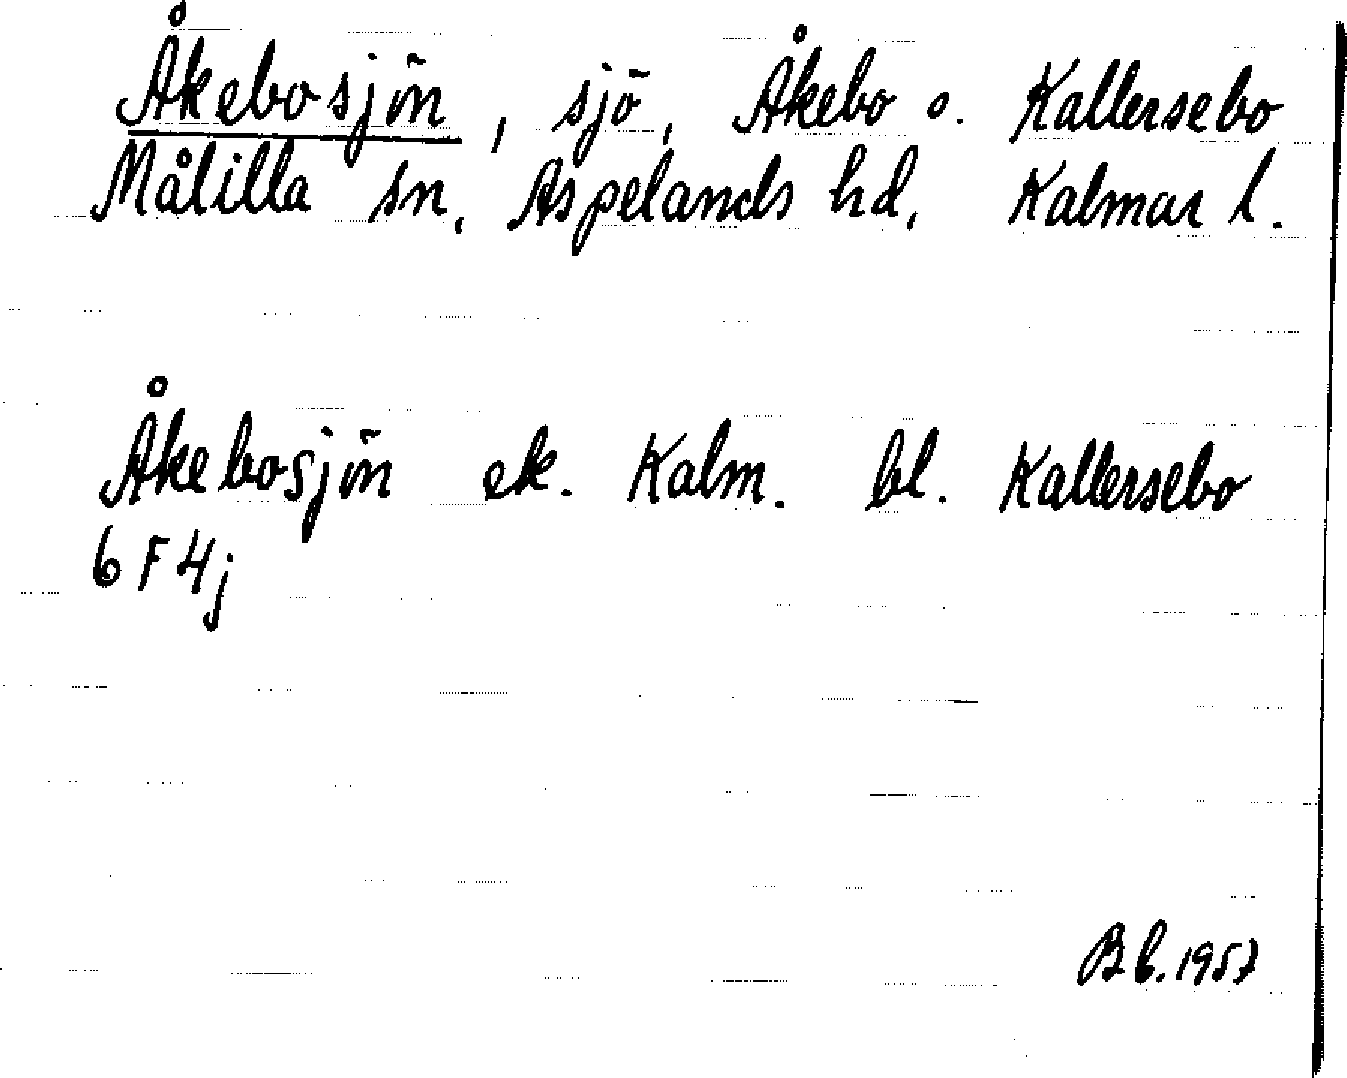 Åkebosjön, sjö, Åkebo o. Kallersebo
Målilla sn, Aspelands hd, Kalmar l.
Åkebosjön ek. Kalm. bl. Kallersebo
6 F 4j
Bb. 1957